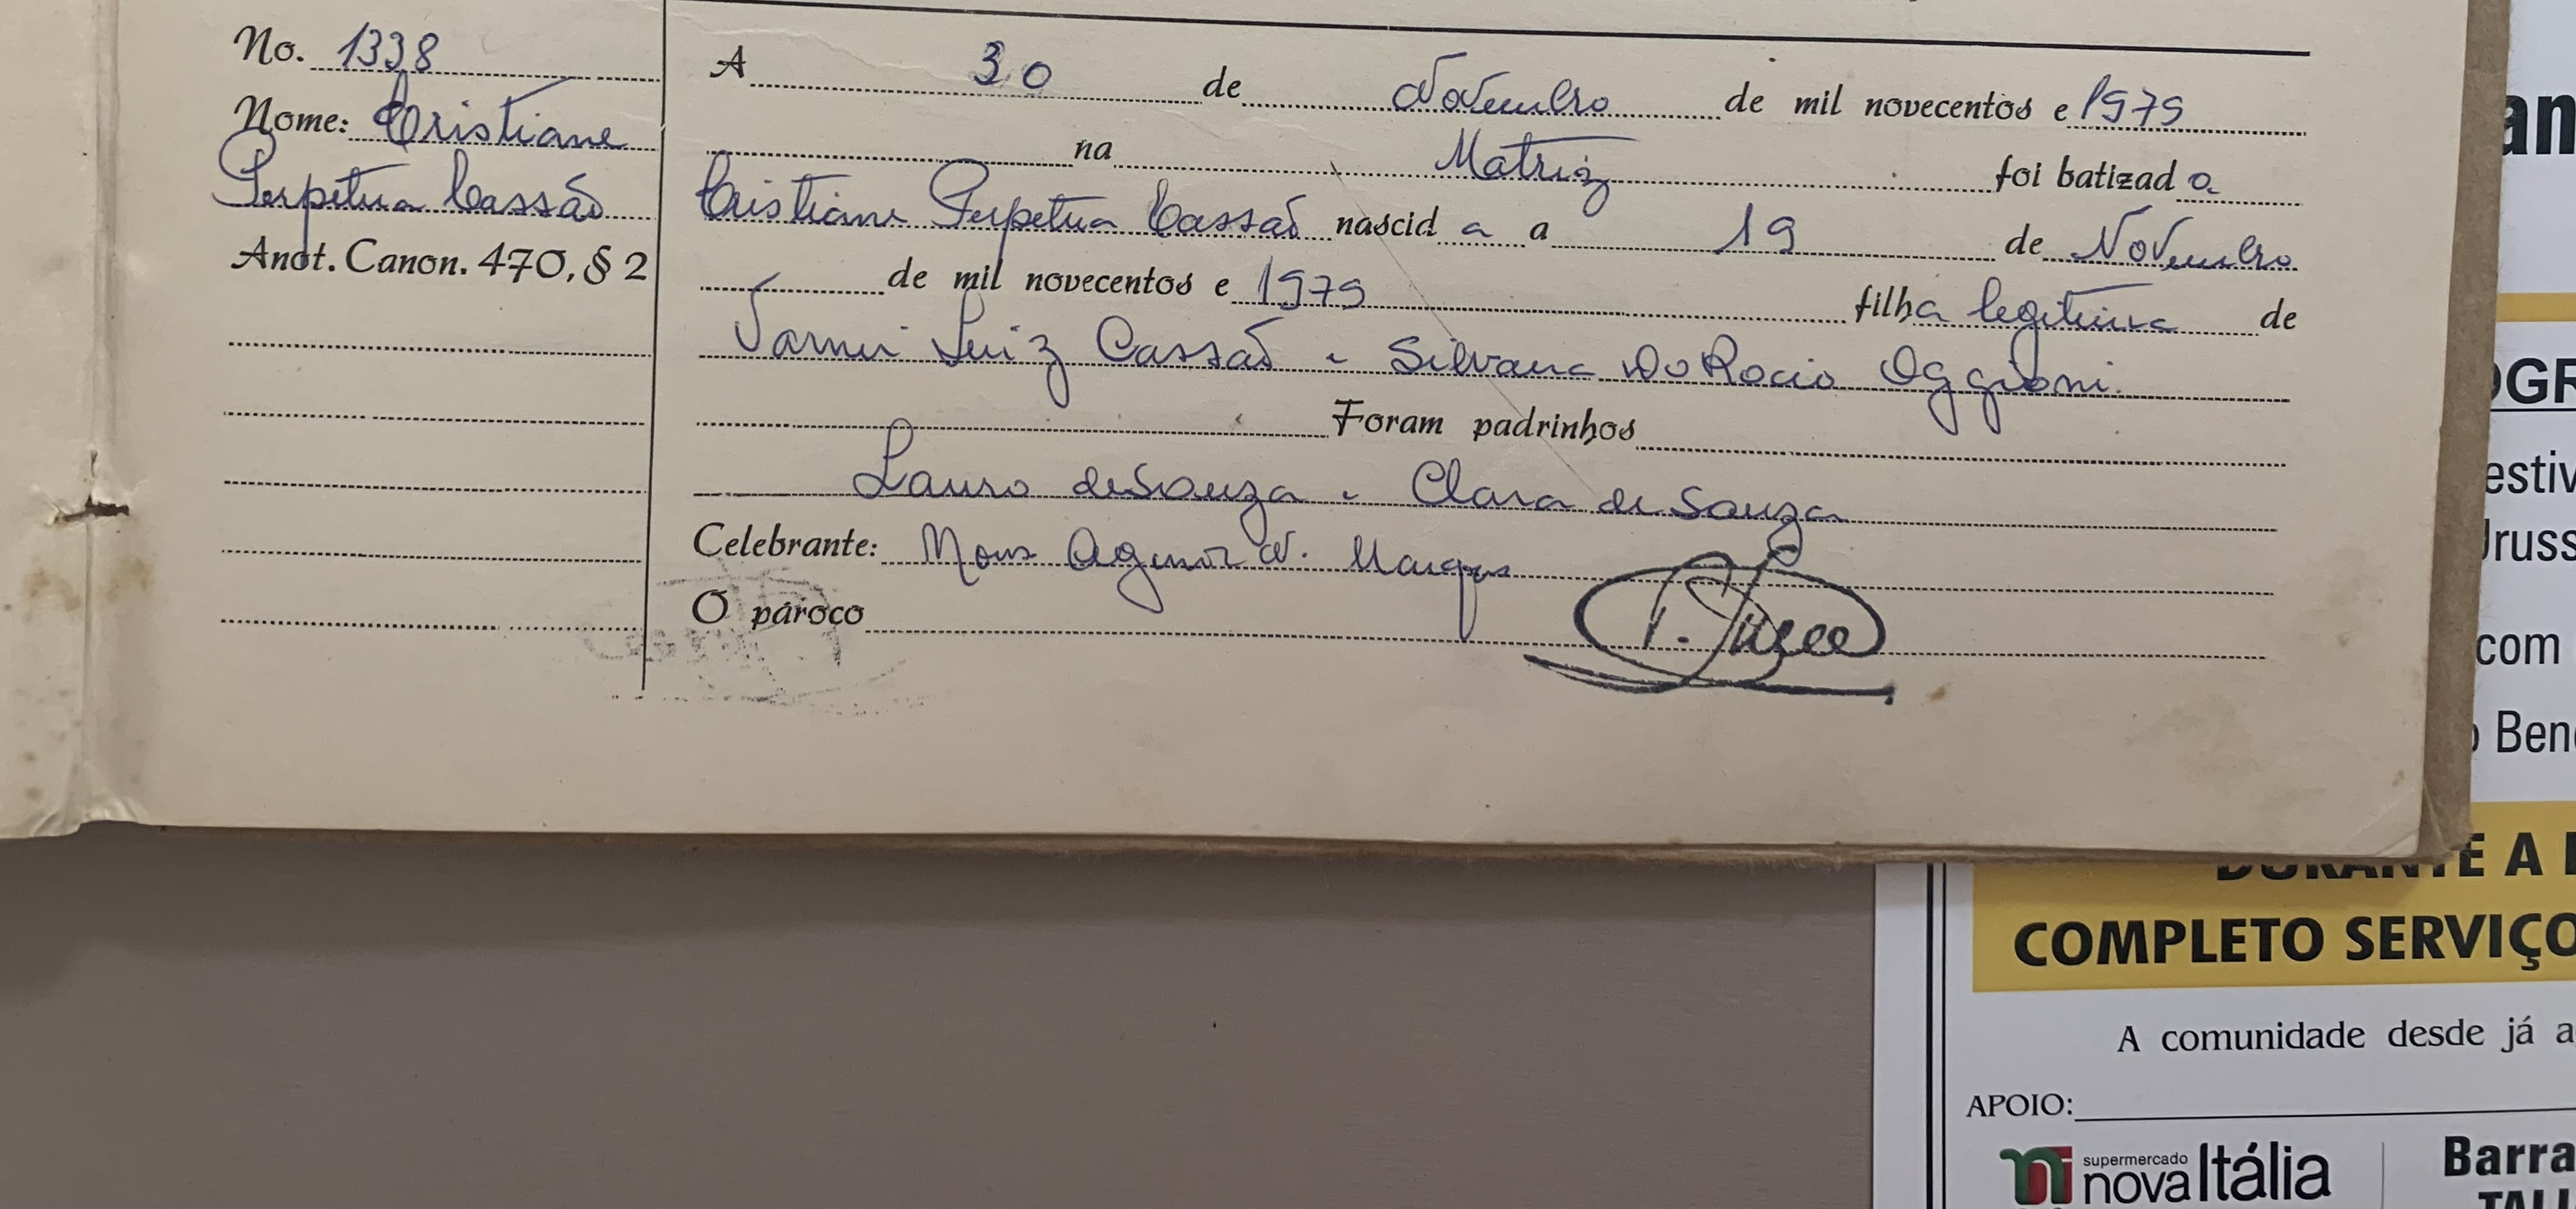 No. 1338
Nome: Cristiane
Perpetua Cassão
Anot. Canon. 470, § 2
A 30 de Novembro de mil novecentos e 1979
na Matriz foi batizad a
Cristiane Perpetua Cassão nascid a a 19 de Novembro
de mil novecentos e 1979 filha legitima de
Luiz Cassão e Silvana do Rocio Oggioni.
Foram padrinhos
Lauro de Souza e Clara de Souza
Celebrante: Mons Agenor N. Marques
O pároco
an
OGR
estiv
Jruss
com
o Ben
DURANTE A
COMPLETO SERVIÇO
A comunidade desde já a
APOIO:
supermercado
nova Itália
Barra